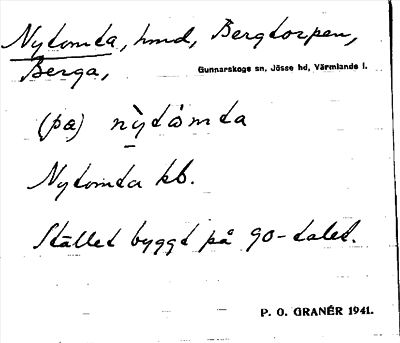 Nytomta, hmd, Bergtorpen,
Berga,
Gunnarskogs sn, Jösse hd, Värmlands l.
(pæ) nỳtòmta
Nytomta kb.
Stället byggt på 90-talet.
P. O. GRANÉR 1941.